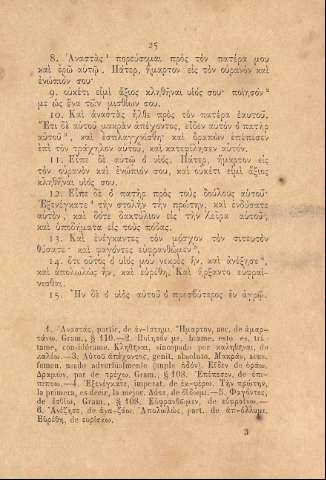 25
8. Ἀναστὰς¹ πορεύσομαι πρὸς τὸν πατέρα μου
καὶ ἐρῶ αὐτῷ. Πάτερ, ἥμαρτον εἰς τὸν οὐρανὸν καὶ
ἐνώπιόν σου·
9. οὐκέτι εἰμὶ ἄξιος κληθῆναι υἱός σου· ποίησόν²
με ὡς ἕνα τῶν μισθίων σου.
10. Καὶ ἀναστὰς ἦλθε πρὸς τὸν πατέρα ἑαυτοῦ.
Ἔτι δὲ αὐτοῦ μακρὰν ἀπέχοντος, εἶδεν αὐτὸν ὁ πατὴρ
αὐτοῦ³, καὶ ἐσπλαγχνίσθη· καὶ δραμὼν ἐπέπεσεν
ἐπὶ τὸν τράχηλον αὐτοῦ, καὶ κατεφίλησεν αὐτόν.
11. Εἶπε δὲ αὐτῷ ὁ υἱός. Πάτερ, ἥμαρτον εἰς
τὸν οὐρανὸν καὶ ἐνώπιόν σου, καὶ οὐκέτι εἰμὶ ἄξιος
κληθῆναι υἱός σου.
12. Εἶπε δὲ ὁ πατὴρ πρὸς τοὺς δούλους αὐτοῦ·
Ἐξενέγκατε⁴ τὴν στολὴν τὴν πρώτην, καὶ ἐνδύσατε
αὐτὸν, καὶ δότε δακτύλιον εἰς τὴν χεῖρα αὐτοῦ,
καὶ ὑποδήματα εἰς τοὺς πόδας.
13. Καὶ ἐνέγκαντες τὸν μόσχον τὸν σιτευτὸν
θύσατε· καὶ φαγόντες εὐφρανθῶμεν⁵,
14. ὅτι οὗτος ὁ υἱός μου νεκρὸς ἦν, καὶ ἀνέζησε⁶,
καὶ ἀπολωλὼς ἦν, καὶ εὑρέθη. Καὶ ἤρξαντο εὐφραί-
νεσθαι.
15. Ἦν δὲ ὁ υἱὸς αὐτοῦ ὁ πρεσβύτερος ἐν ἀγρῷ.
1. Ἀναστάς, partic. de ἀν-ίστημι. Ἥμαρτον, aor. de ἁμαρ-
τάνω. Gram., § 110.—2. Ποίησόν με, hazme, esto es, trá-
tame, considérame. Κληθῆναι, sincopado por καληθῆναι, de
καλέω.—3. Αὐτοῦ ἀπέχοντος, genit. absoluto. Μακράν, acus.
femen. usado adverbialmente (suple ὁδόν). Εἶδεν de ὁράω.
Δραμών, por de τρέχω. Gram., § 108. Ἐπέπεσεν, de ἐπι-
πίπτω.—4. Ἐξενέγκατε, imperat. de ἐκ-φέρω. Τὴν πρώτην,
la primera, es decir, la mejor. Δότε, de δίδωμι.—5. Φαγόντες,
de ἐσθίω, Gram., § 108. Εὐφρανθῶμεν, de εὐφραίνω.—
6. Ἀνέζησε, de ἀνα-ζάω. Ἀπολωλώς, part. de ἀπ-όλλυμι.
Εὑρέθη, de εὑρίσκω.
3